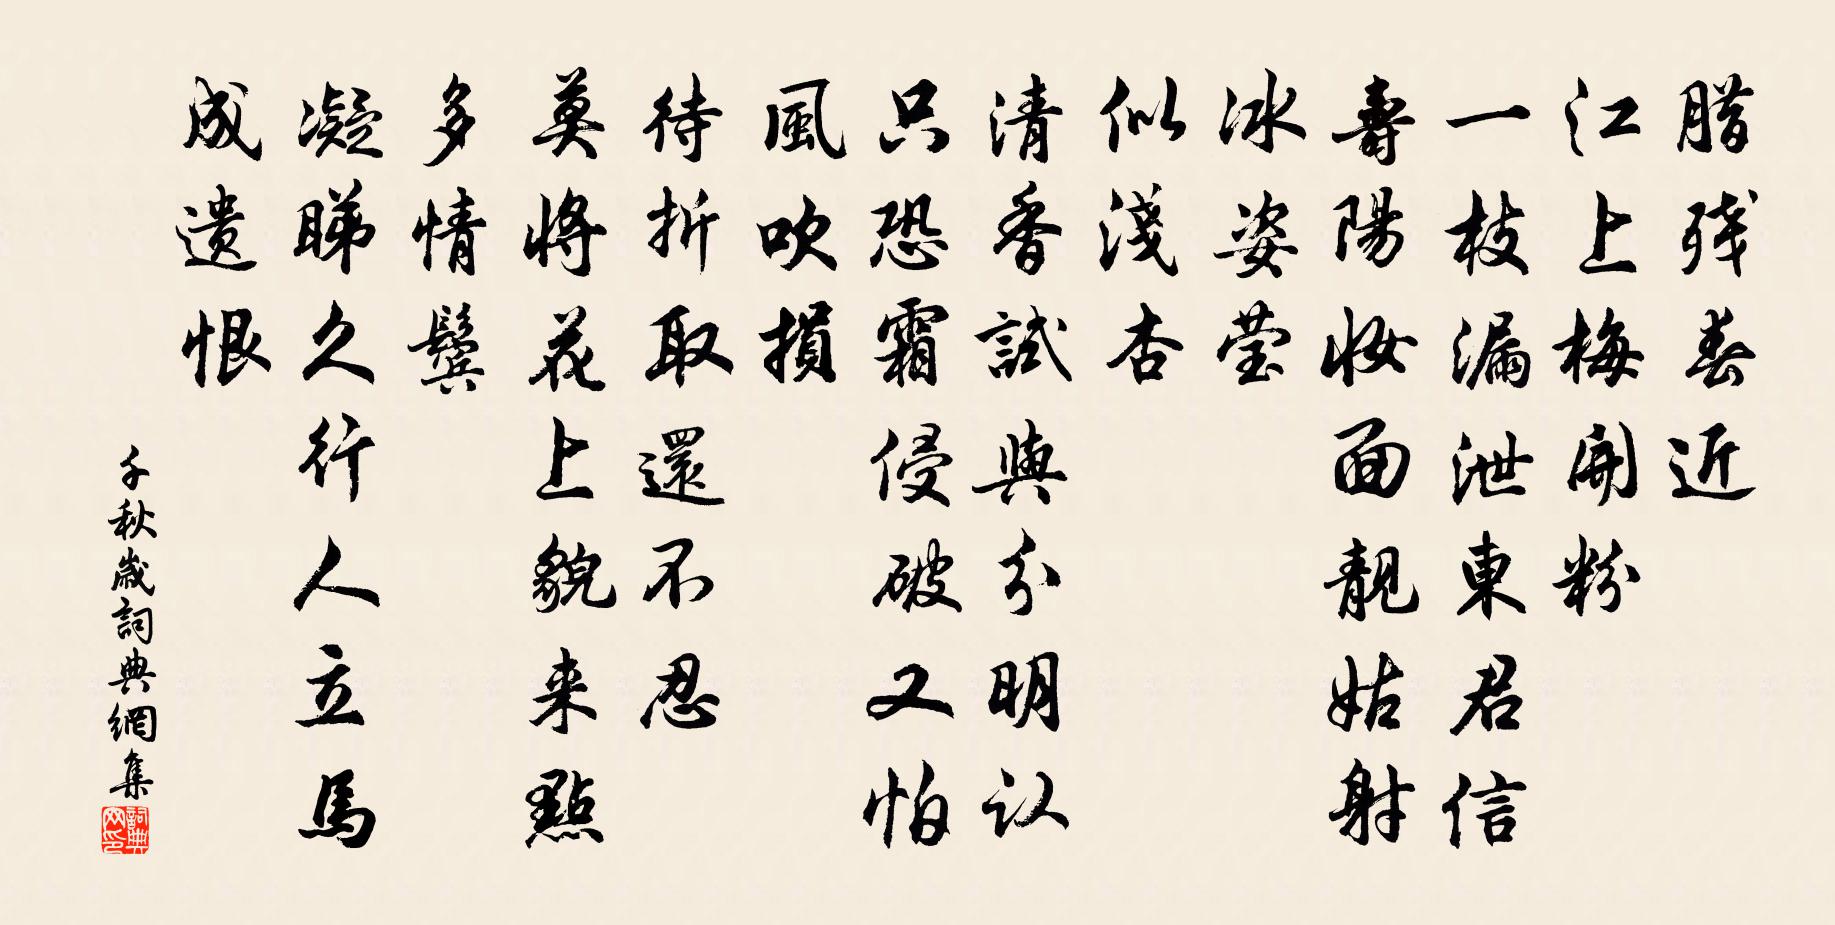 腊残春近
江上梅開粉
一枝漏泄東君信
壽陽妝面靚姑射
冰姿莹
似淺杏
清香試與分明认
只恐霜侵破又怕
風吹損
待折取還不忍
莫將花上貌来點
多情鬓
凝睇久行人立馬
成遗恨
千秋歲詞典網集
詞典网印